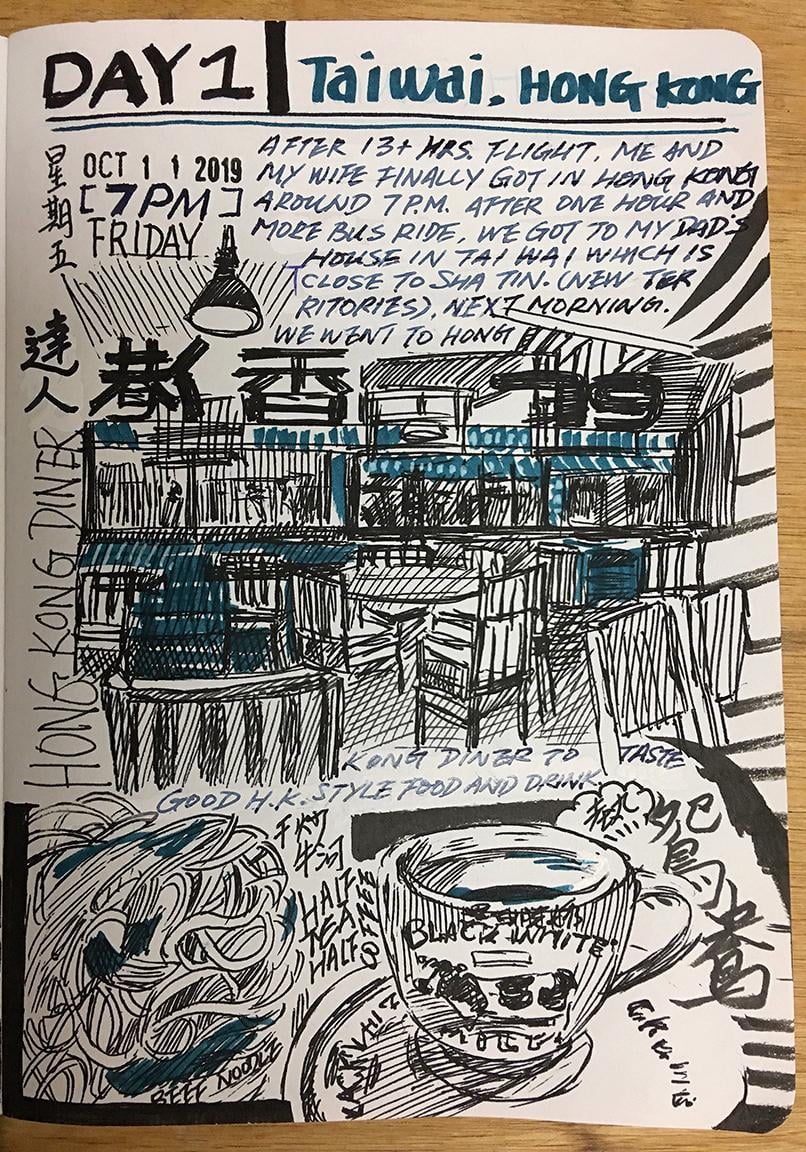 DAY 1 Taiwai. HONG KONG
星期五
OCT 1 1 2019
[7PM]
FRIDAY
AFTER 13+ HRS. FLIGHT, ME AND
MY WIFE FINALLY GOT IN HONG KONG
AROUND 7 P.M. AFTER ONE HOUR AND
MORE BUS RIDE, WE GOT TO MY DAD'S
HOUSE IN TAI WAI WHICH IS
CLOSE TO SHA TIN. (NEW TER
RITORIES), NEXT MORNING.
WE WENT TO HONG
達人
巷仔香
79
HONG KONG DINER
KONG DINER TO TASTE
GOOD H.K. STYLE FOOD AND DRINK
干炒
牛河
HALF
TEA
HALF
COFFEE
BEEF NOODLE
BLACK WHITE
鴛鴦